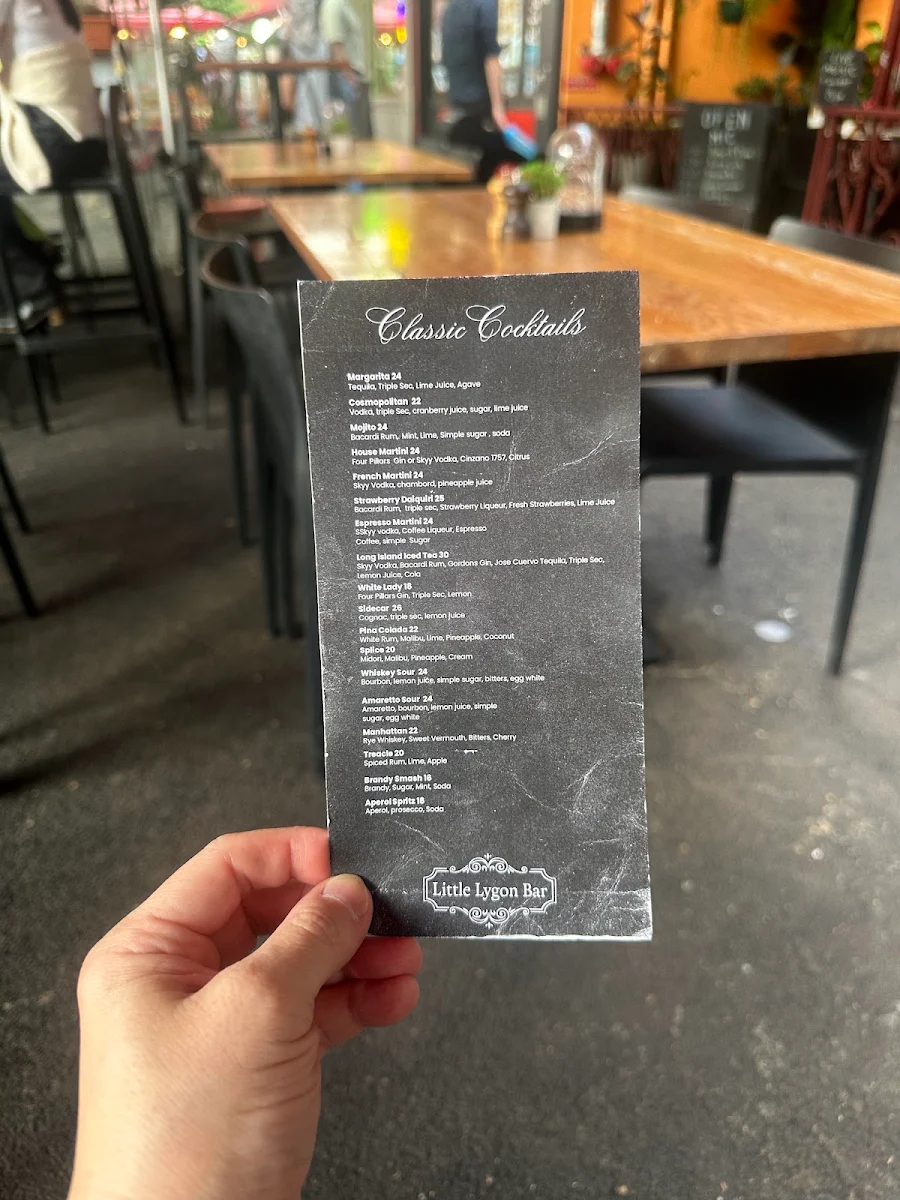 Classic Cocktails
Margarita 24
Tequila, Triple Sec, Lime Juice, Agave
Cosmopolitan 22
Vodka, triple Sec, cranberry juice, sugar, lime juice
Mojito 24
Bacardi Rum, Mint, Lime, Simple sugar , soda
House Martini 24
Four Pillars Gin or Skyy Vodka, Cinzano 1757, Citrus
French Martini 24
Skyy Vodka, chambord, pineapple juice
Strawberry Daiquiri 25
Bacardi Rum, triple sec, Strawberry Liqueur, Fresh Strawberries, Lime Juice
Espresso Martini 24
SSkyy vodka, Coffee Liqueur, Espresso
Coffee, simple Sugar
Long Island Iced Tea 30
Skyy Vodka, Bacardi Rum, Gordons Gin, Jose Cuervo Tequila, Triple Sec,
Lemon Juice, Cola
White Lady 18
Four Pillars Gin, Triple Sec, Lemon
Sidecar 26
Cognac, triple sec, lemon juice
Pina Colada 22
White Rum, Malibu, Lime, Pineapple, Coconut
Splice 20
Midori, Malibu, Pineapple, Cream
Whiskey Sour 24
Bourbon, lemon juice, simple sugar, bitters, egg white
Amaretto Sour 24
Amaretto, bourbon, lemon juice, simple
sugar, egg white
Manhattan 22
Rye Whiskey, Sweet Vermouth, Bitters, Cherry
Treacle 20
Spiced Rum, Lime, Apple
Brandy Smash 16
Brandy, Sugar, Mint, Soda
Aperol Spritz 18
Aperol, prosecco, Soda
Little Lygon Bar
OPEN
MIC